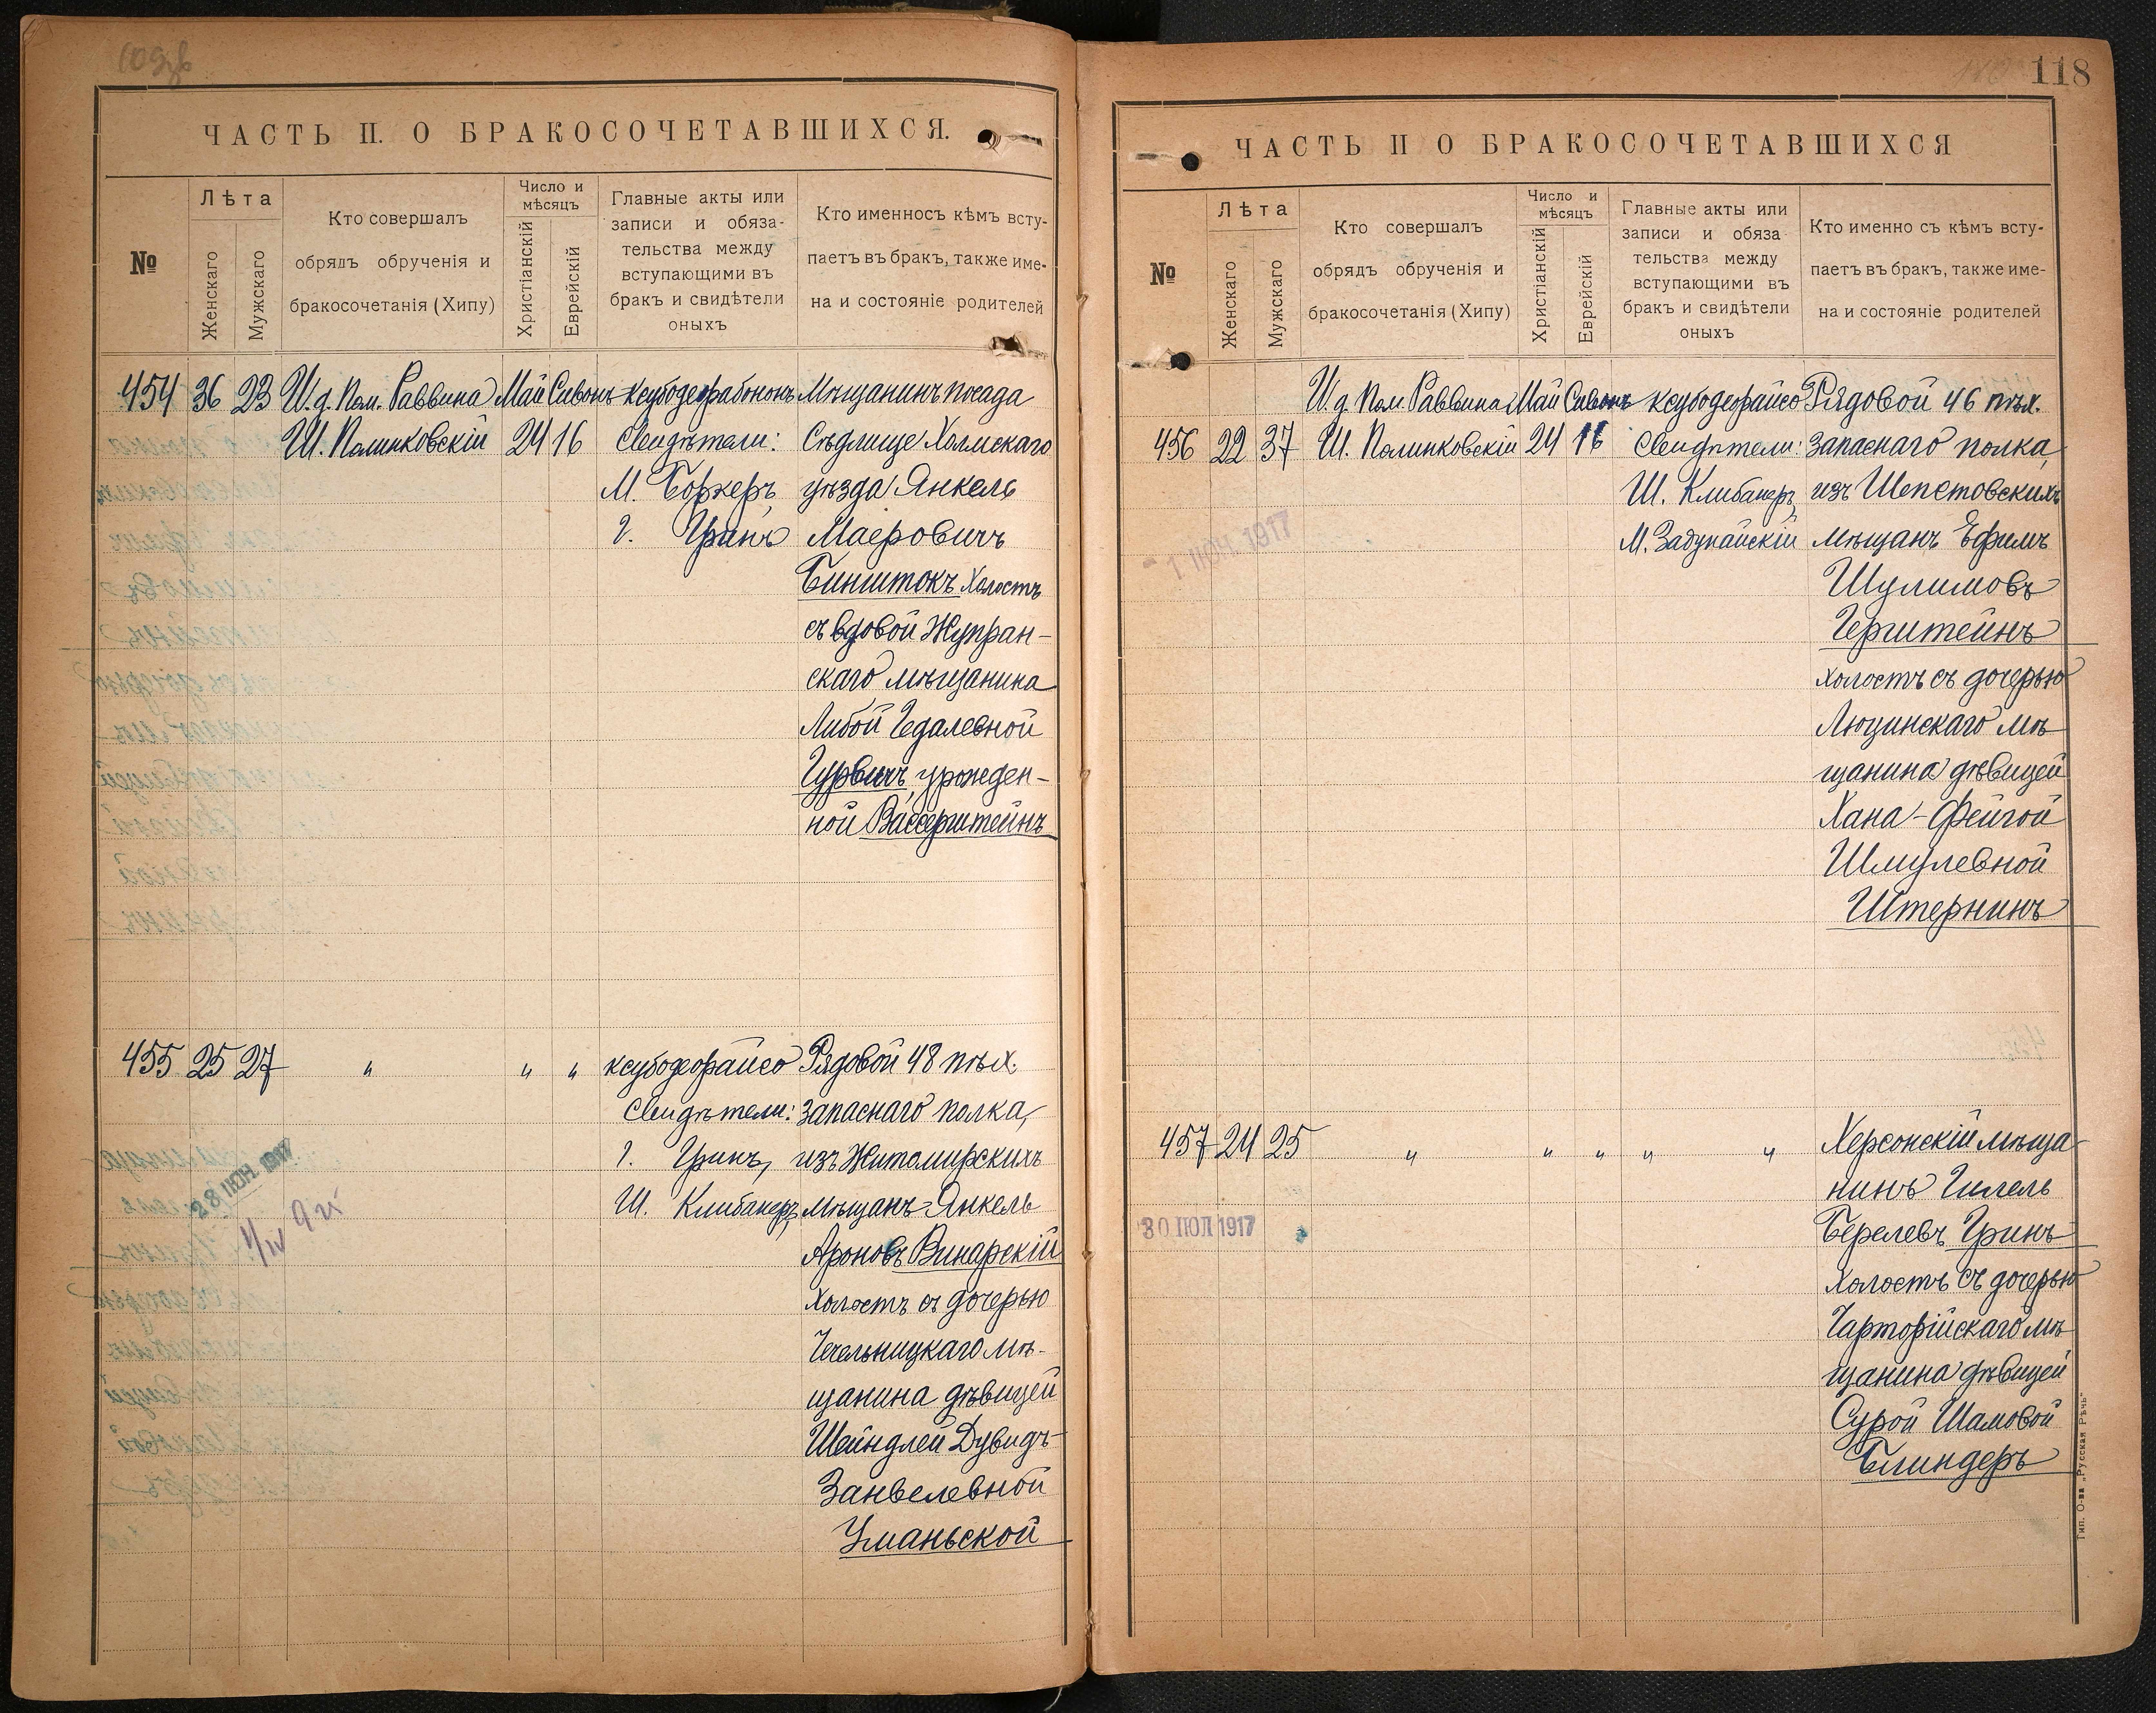 ЧАСТЬ II. О БРАКОСОЧЕТАВШИХСЯ.
№
Лѣта
Женскаго
Мужскаго
Кто совершалъ
обрядъ обрученія и
бракосочетанія (Хипу)
Число и
мѣсяцъ
Христіанскій
Еврейскій
Главные акты или
записи и обяза-
тельства между
вступающими въ
бракъ и свидѣтели
оныхъ
Кто именносъ кѣмъ всту-
паетъ въ бракъ, также име-
на и состояніе родителей
454 36 23 И.д. Пом. Раввина Май Сивонъ ксубодерабононъ Мѣщанинъ посада
Ш. Полинковскій 24 16 Свидѣтели: Сѣдлище Холмскаго
М. Боркеръ, уѣзда Янкель
Г. Гринъ Маеровичъ
Бинштокъ холостъ
съ вдовой Жупран-
скаго мѣщанина
Либой Гедалевной
Гурвичъ, урожден-
ной Вассерштейнъ
455 25 27 " " " ксубодеорайсо Рядовой 48 пѣх.
Свидѣтели: запаснаго полка,
Г. Гринъ, изъ Житомирскихъ
Ш. Клибанеръ мѣщанъ Янкель
28 ІЮН 1917
Ароновъ Винарскій
холостъ съ дочерью
Чечельницкаго мѣ-
щанина дѣвицей
Шейндлей Дувидъ-
Занвелевной
Уманьской
118
ЧАСТЬ II О БРАКОСОЧЕТАВШИХСЯ
№
Лѣта
Женскаго
Мужскаго
Кто совершалъ
обрядъ обрученія и
бракосочетанія (Хипу)
Число и
мѣсяцъ
Христіанскій
Еврейскій
Главные акты или
записи и обяза
тельства между
вступающими въ
бракъ и свидѣтели
оныхъ
Кто именно съ кѣмъ всту-
паетъ въ бракъ, также име-
на и состояніе родителей
И.д. Пом. Раввина Май Сивонъ ксубодеорайсо Рядовой 46 пѣх.
456 22 37 Ш. Полинковскій 24 16 Свидѣтели: запаснаго полка,
Ш. Клибанеръ, изъ Шепетовскихъ
- 1 ІЮН. 1917
М. Задунайскій мѣщанъ Ефимъ
Шулимовъ
Герштейнъ
холостъ съ дочерью
Люцинскаго мѣ
щанина дѣвицей
Хана-Фейгой
Шмулевной
Штернинъ
457 24 25 " " " " " Херсонскій мѣща
нинъ Гилель
30 ІЮЛ 1917
Берелевъ Гринъ
холостъ съ дочерью
Чарторійскаго мѣ
щанина дѣвицей
Сурой Шамовой
Блиндеръ
Тип. О-ва „Русская Рѣчь"